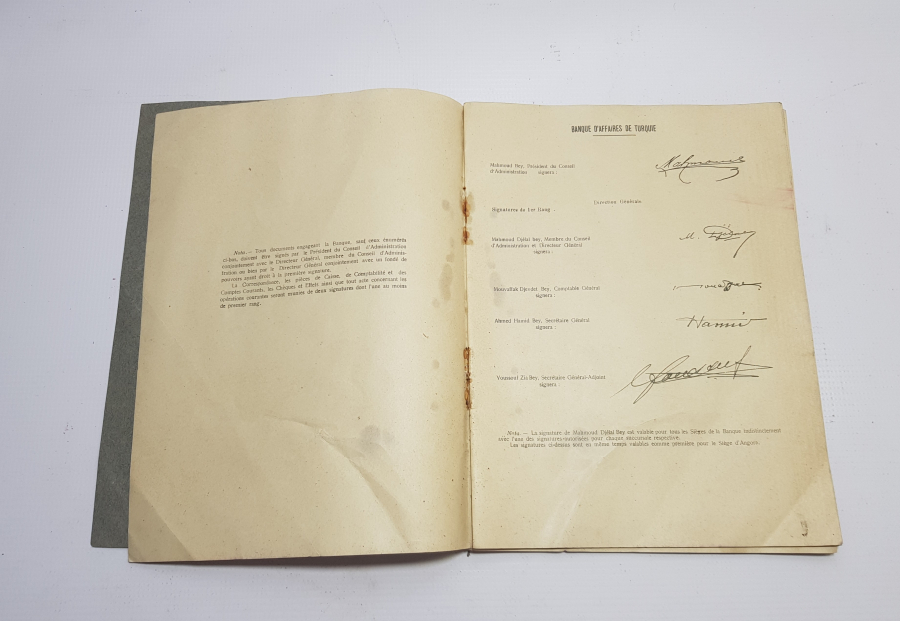 Nota.— Tous documents engageant la Banque, sauf ceux énumérés
ci-bas, doivent être signés par le Président du Conseil d'Administration
conjointement avec le Directeur Général, membre du Conseil d'Adminis-
tration ou bien par le Directeur Général conjointement avec un fondé de
pouvoirs ayant droit à la première signature.
La Correspondance, les pièces de Caisse, de Comptabilité et des
Comptes Courants, les Chèques et Effets ainsi que tout acte concernant les
opérations courantes seront munies de deux signatures dont l'une au moins
de premier rang.
BANQUE D'AFFAIRES DE TURQUIE
Mahmoud Bey, Président du Conseil
d'Administration signera :
Direction Générale
Signatures de 1er Rang :
Mahmoud Djélal bey, Membre du Conseil
d'Administration et Directeur Général
signera :
Djevdet Bey, Comptable Général
signera :
Ahmed Hamid Bey, Secrétaire Général
signera :
Hamid
Youssouf Zia Bey, Secrétaire Général-Adjoint
signera :
Nota. — La signature de Mahmoud Djélal Bey est valable pour tous les Sièges de la Banque indistinctement
avec l'une des signatures autorisées pour chaque succursale respective.
Les signatures ci-dessus sont en même temps valables comme première pour le Siège d'Angora.